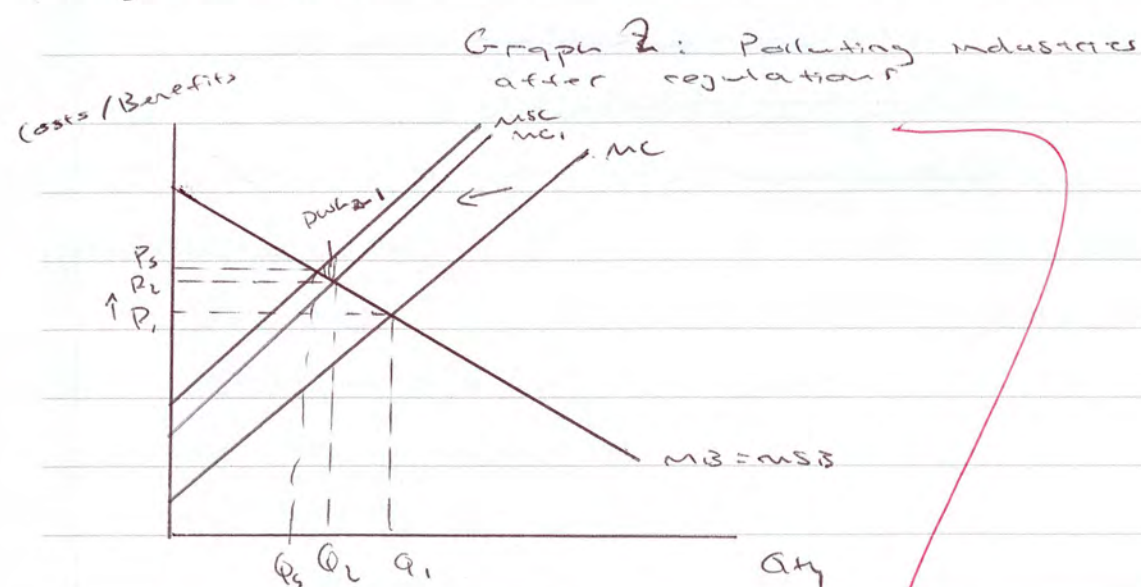 Graph 2: Polluting industries
after regulations
Costs/Benefits
MSC
MC₁
MC
DWL
Ps
P₂
↑ P₁
MB = MSB
Qs Q₂ Q₁ Qty